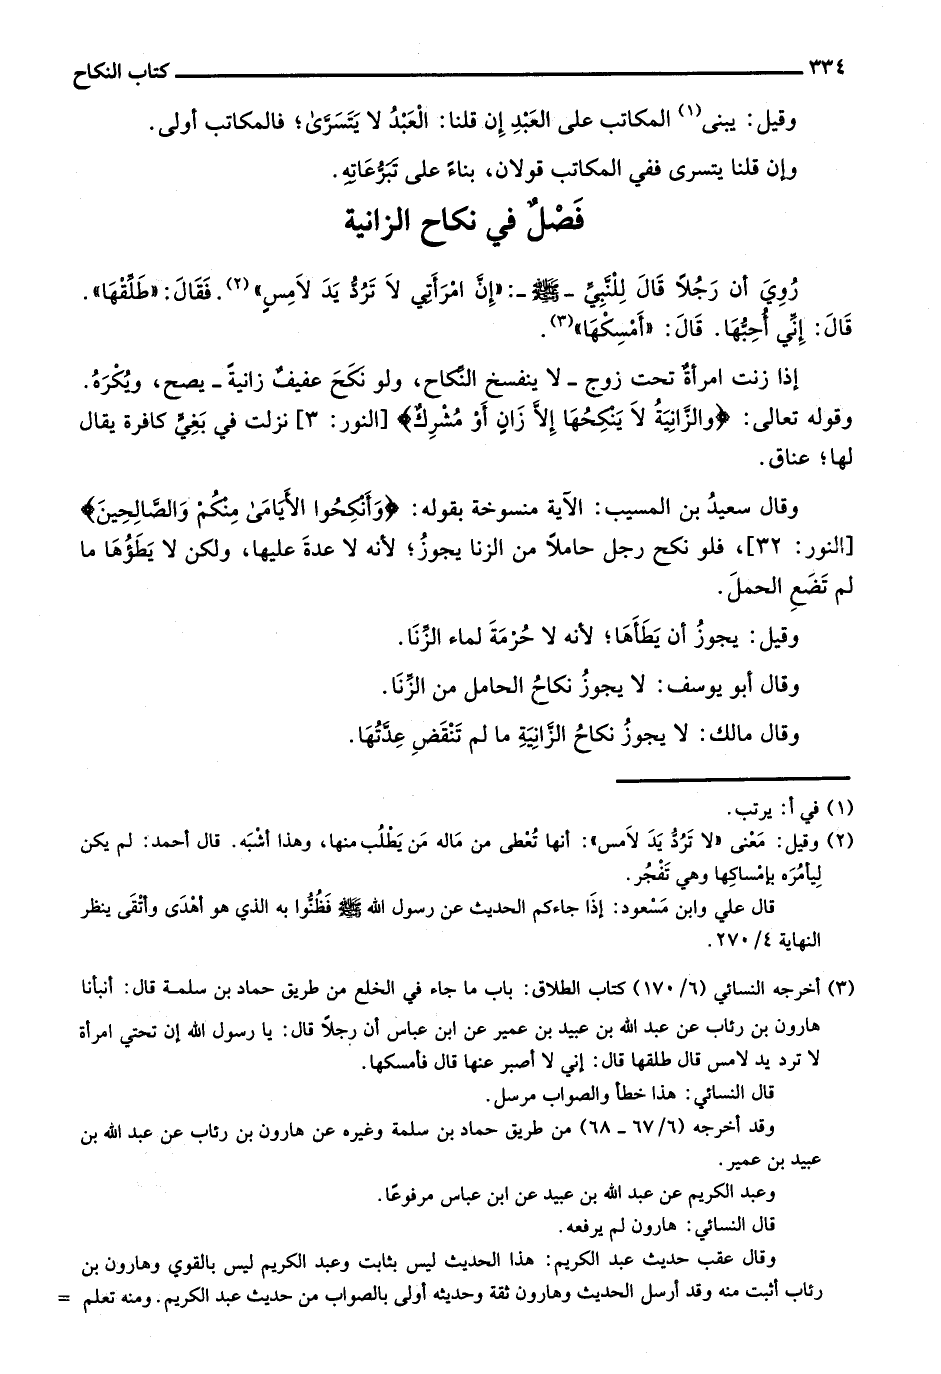 ٣٣٤ كتاب النكاح
وقيل: يبنى(١) المكاتب على العَبْدِ إن قلنا: الْعَبْدُ لا يَتَسَرَّىٰ؛ فالمكاتب أولى.
وإن قلنا يتسرى ففي المكاتب قولان، بناءً على تَبَرُّعَاتِهِ.
فَصْلٌ في نكاح الزانية
رُوِيَ أن رَجُلاً قَالَ لِلنَّبِيِّ ـ ﷺ ـ: «إِنَّ امْرَأَتِي لاَ تَرُدُّ يَدَ لاَمِسٍ»(٢). فَقَالَ: «طَلِّقْهَا».
قَالَ: إِنِّي أُحِبُّهَا. قَالَ: «أَمْسِكْهَا»(٣).
إذا زنت امرأةٌ تحت زوج ـ لا ينفسخ النِّكاح، ولو نكَحَ عفيفٌ زانيةً ـ يصح، ويُكْرَهُ.
وقوله تعالى: ﴿والزَّانِيَةُ لاَ يَنْكِحُهَا إِلاَّ زَانٍ أَوْ مُشْرِكٌ﴾ [النور: ٣] نزلت في بَغِيٍّ كافرة يقال
لها؛ عناق.
وقال سعيدُ بن المسيب: الآية منسوخة بقوله: ﴿وَأَنْكِحُوا الأَيَامَىٰ مِنْكُمْ وَالصَّالِحِينَ﴾
[النور: ٣٢]، فلو نكح رجل حاملاً من الزنا يجوزُ؛ لأنه لا عدةَ عليها، ولكن لا يَطَؤُهَا ما
لم تَضَعِ الحملَ.
وقيل: يجوزُ أن يَطَأَهَا؛ لأنه لا حُرْمَةَ لماء الزِّنَا.
وقال أبو يوسف: لا يجوزُ نكاحُ الحامل من الزِّنَا.
وقال مالك: لا يجوزُ نكاحُ الزَّانِيَةِ ما لم تَنْقَضِ عِدَّتُهَا.
(١) في أ: يرتب.
(٢) وقيل: مَعْنى «لا تَرُدُّ يَدَ لاَمس»: أنها تُعْطى من مَاله مَن يَطْلُب منها، وهذا أشْبَه. قال أحمد: لم يكن
لِيأمُرَه بإمْساكِها وهي تَفْجُر.
قال علي وابن مَسْعود: إذَا جاءكم الحديث عن رسول الله ﷺ فَظُنُّوا به الذي هو أهْدَى وأتْقَى ينظر
النهاية ٤/ ٢٧٠.
(٣) أخرجه النسائي (٦/ ١٧٠) كتاب الطلاق: باب ما جاء في الخلع من طريق حماد بن سلمة قال: أنبأنا
هارون بن رئاب عن عبد الله بن عبيد بن عمير عن ابن عباس أن رجلاً قال: يا رسول الله إن تحتي امرأة
لا ترد يد لامس قال طلقها قال: إني لا أصبر عنها قال فأمسكها.
قال النسائي: هذا خطأ والصواب مرسل.
وقد أخرجه (٦/ ٦٧ ـ ٦٨) من طريق حماد بن سلمة وغيره عن هارون بن رئاب عن عبد الله بن
عبيد بن عمير.
وعبد الكريم عن عبد الله بن عبيد عن ابن عباس مرفوعًا.
قال النسائي: هارون لم يرفعه.
وقال عقب حديث عبد الكريم: هذا الحديث ليس بثابت وعبد الكريم ليس بالقوي وهارون بن
رئاب أثبت منه وقد أرسل الحديث وهارون ثقة وحديثه أولى بالصواب من حديث عبد الكريم. ومنه تعلم =